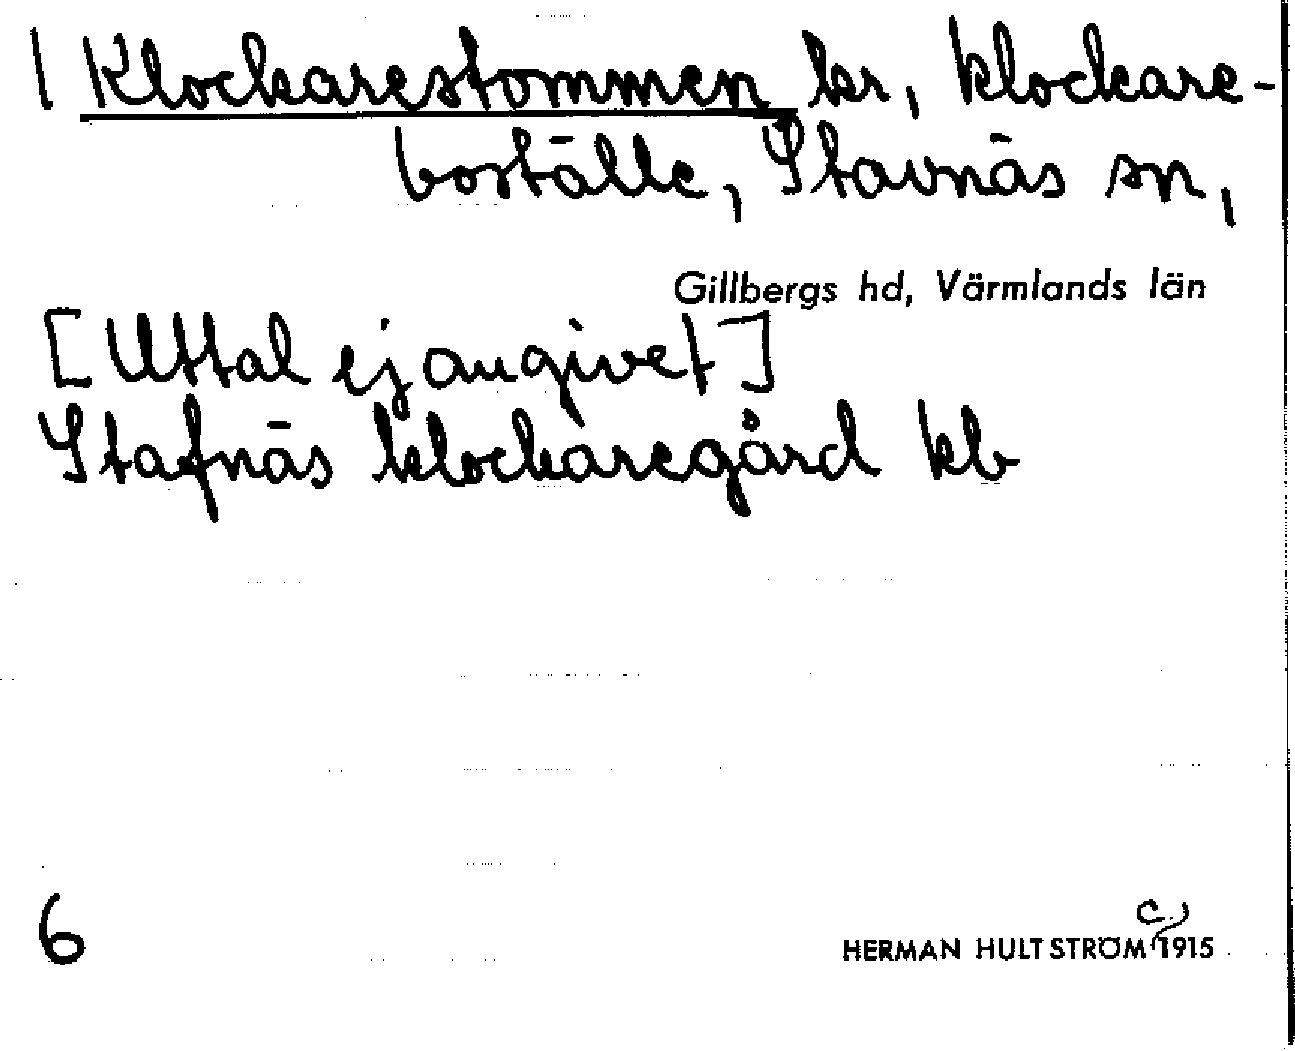 1 Klockarestommen kr, klockare-
boställe, Stavnäs sn,
Gillbergs hd, Värmlands län
[Uttal ej angivet]
Stafnäs klockaregård kb
6
HERMAN HULTSTRÖM c. 1915